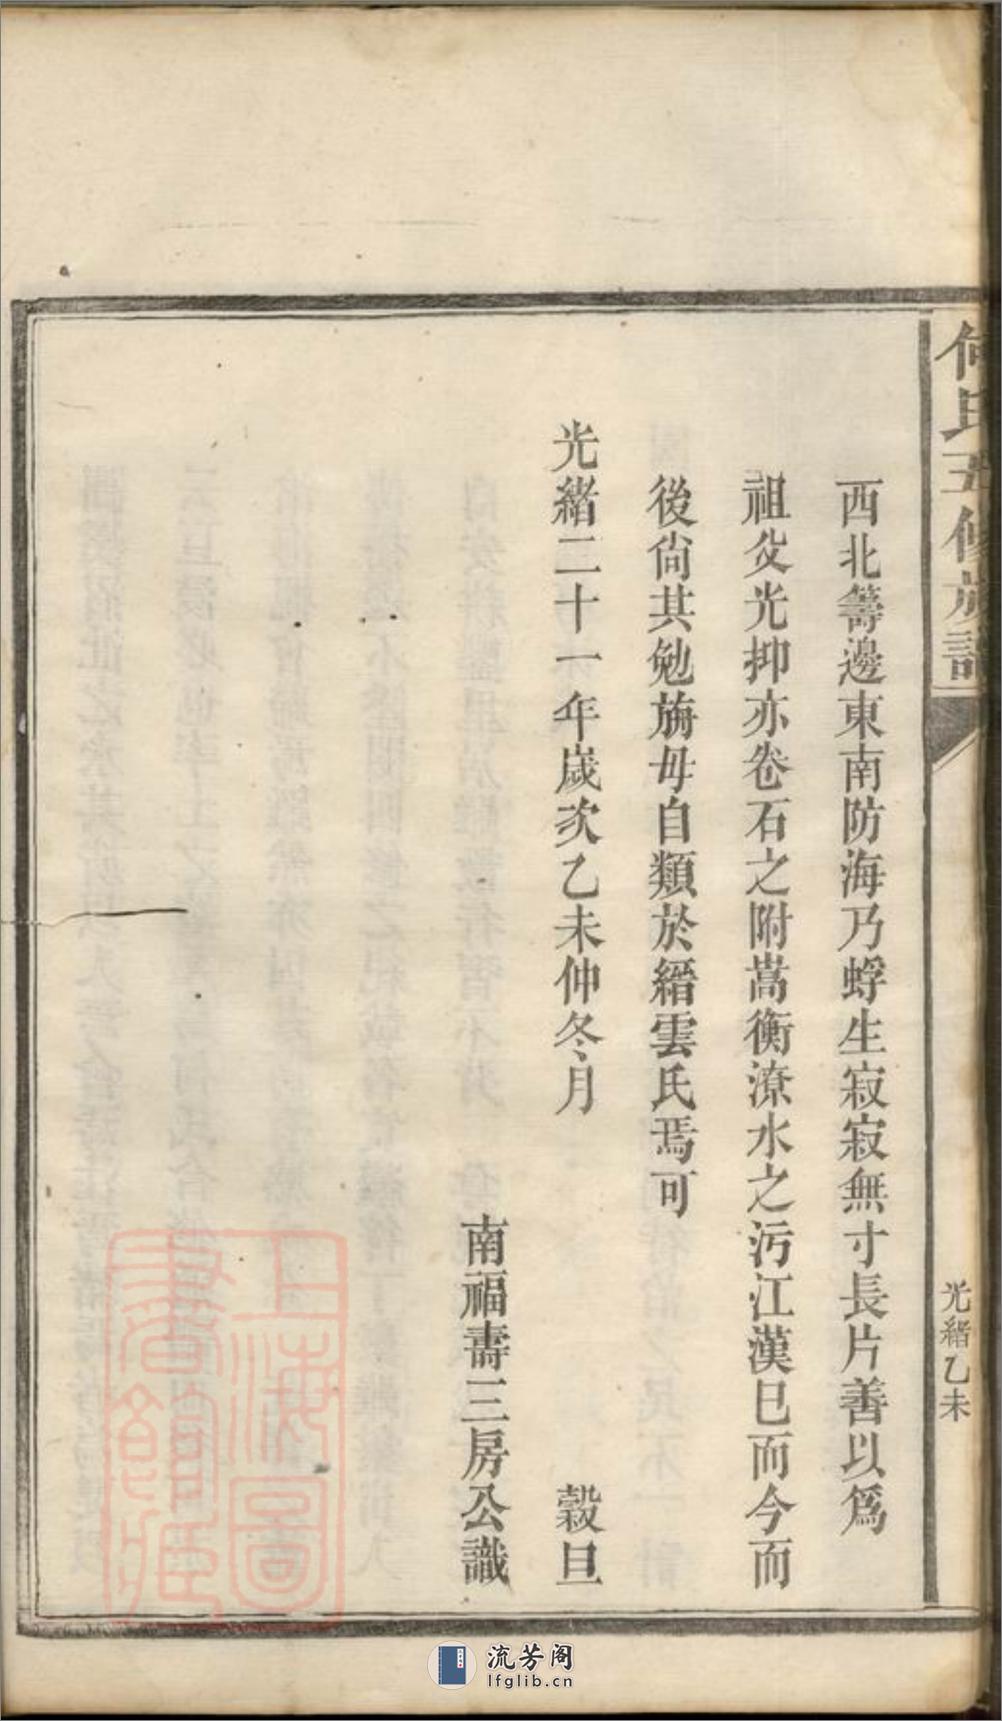 何氏五修族譜
光緒乙未
西北籌邊東南防海乃蜉生寂寂無寸長片善以爲
祖父光抑亦卷石之附嵩衡潦水之污江漢巳而今而
後尙其勉旃毋自類於縉雲氏焉可
光緒二十一年歲次乙未仲冬月 穀旦
南福壽三房公識
上海圖書館藏
流芳阁
lfglib.cn